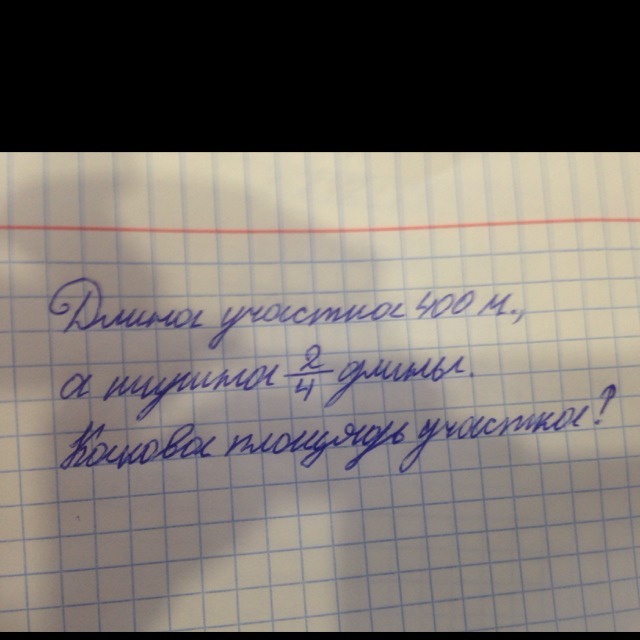 Длина участка 400 м.,
а ширина 2/4 длины.
Какова площядь участка?